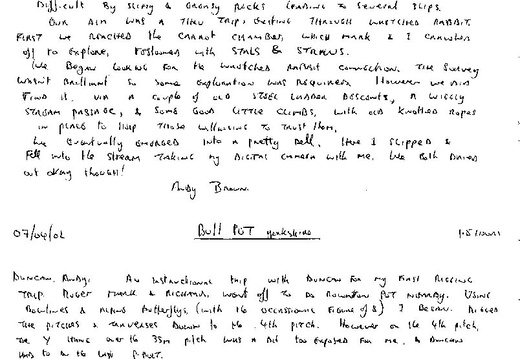 Difficult By slippy & greasy rocks leading to several slips.
Our aim was a thru trip, getting through wretched rabbit.
First we reached the Carrot Chamber, which Mark & I crawled
off to explore, festooned with stals & straws.
We began looking for the wretched rabbit connection. The survey
wasn't brilliant so some exploration was required. However we did
find it, via a couple of old steel ladder descents, a wiggly
stream passage, & some good little climbs, with old knotted ropes
in place to help those willing to trust them.
We eventually emerged into a pretty dell. Here I slipped &
fell into the stream taking my digital camera with me. We both dried
out okay though!
Andy Brown.
07/04/02 Bull Pot Yorkshire
Duncan, Andy. An instructional trip with Duncan for my first rigging
trip. Roger Mark & Richard, went off to do Rowten Pot nearby. Using
Bowlines & Alpine Butterflys, (with the occassional figure of 8) I began. Rigged
the pitches & traverses down to the 4th pitch. However on the 4th pitch,
the Y hang over the 35m pitch was a bit too exposed for me, & Duncan
had to do the last